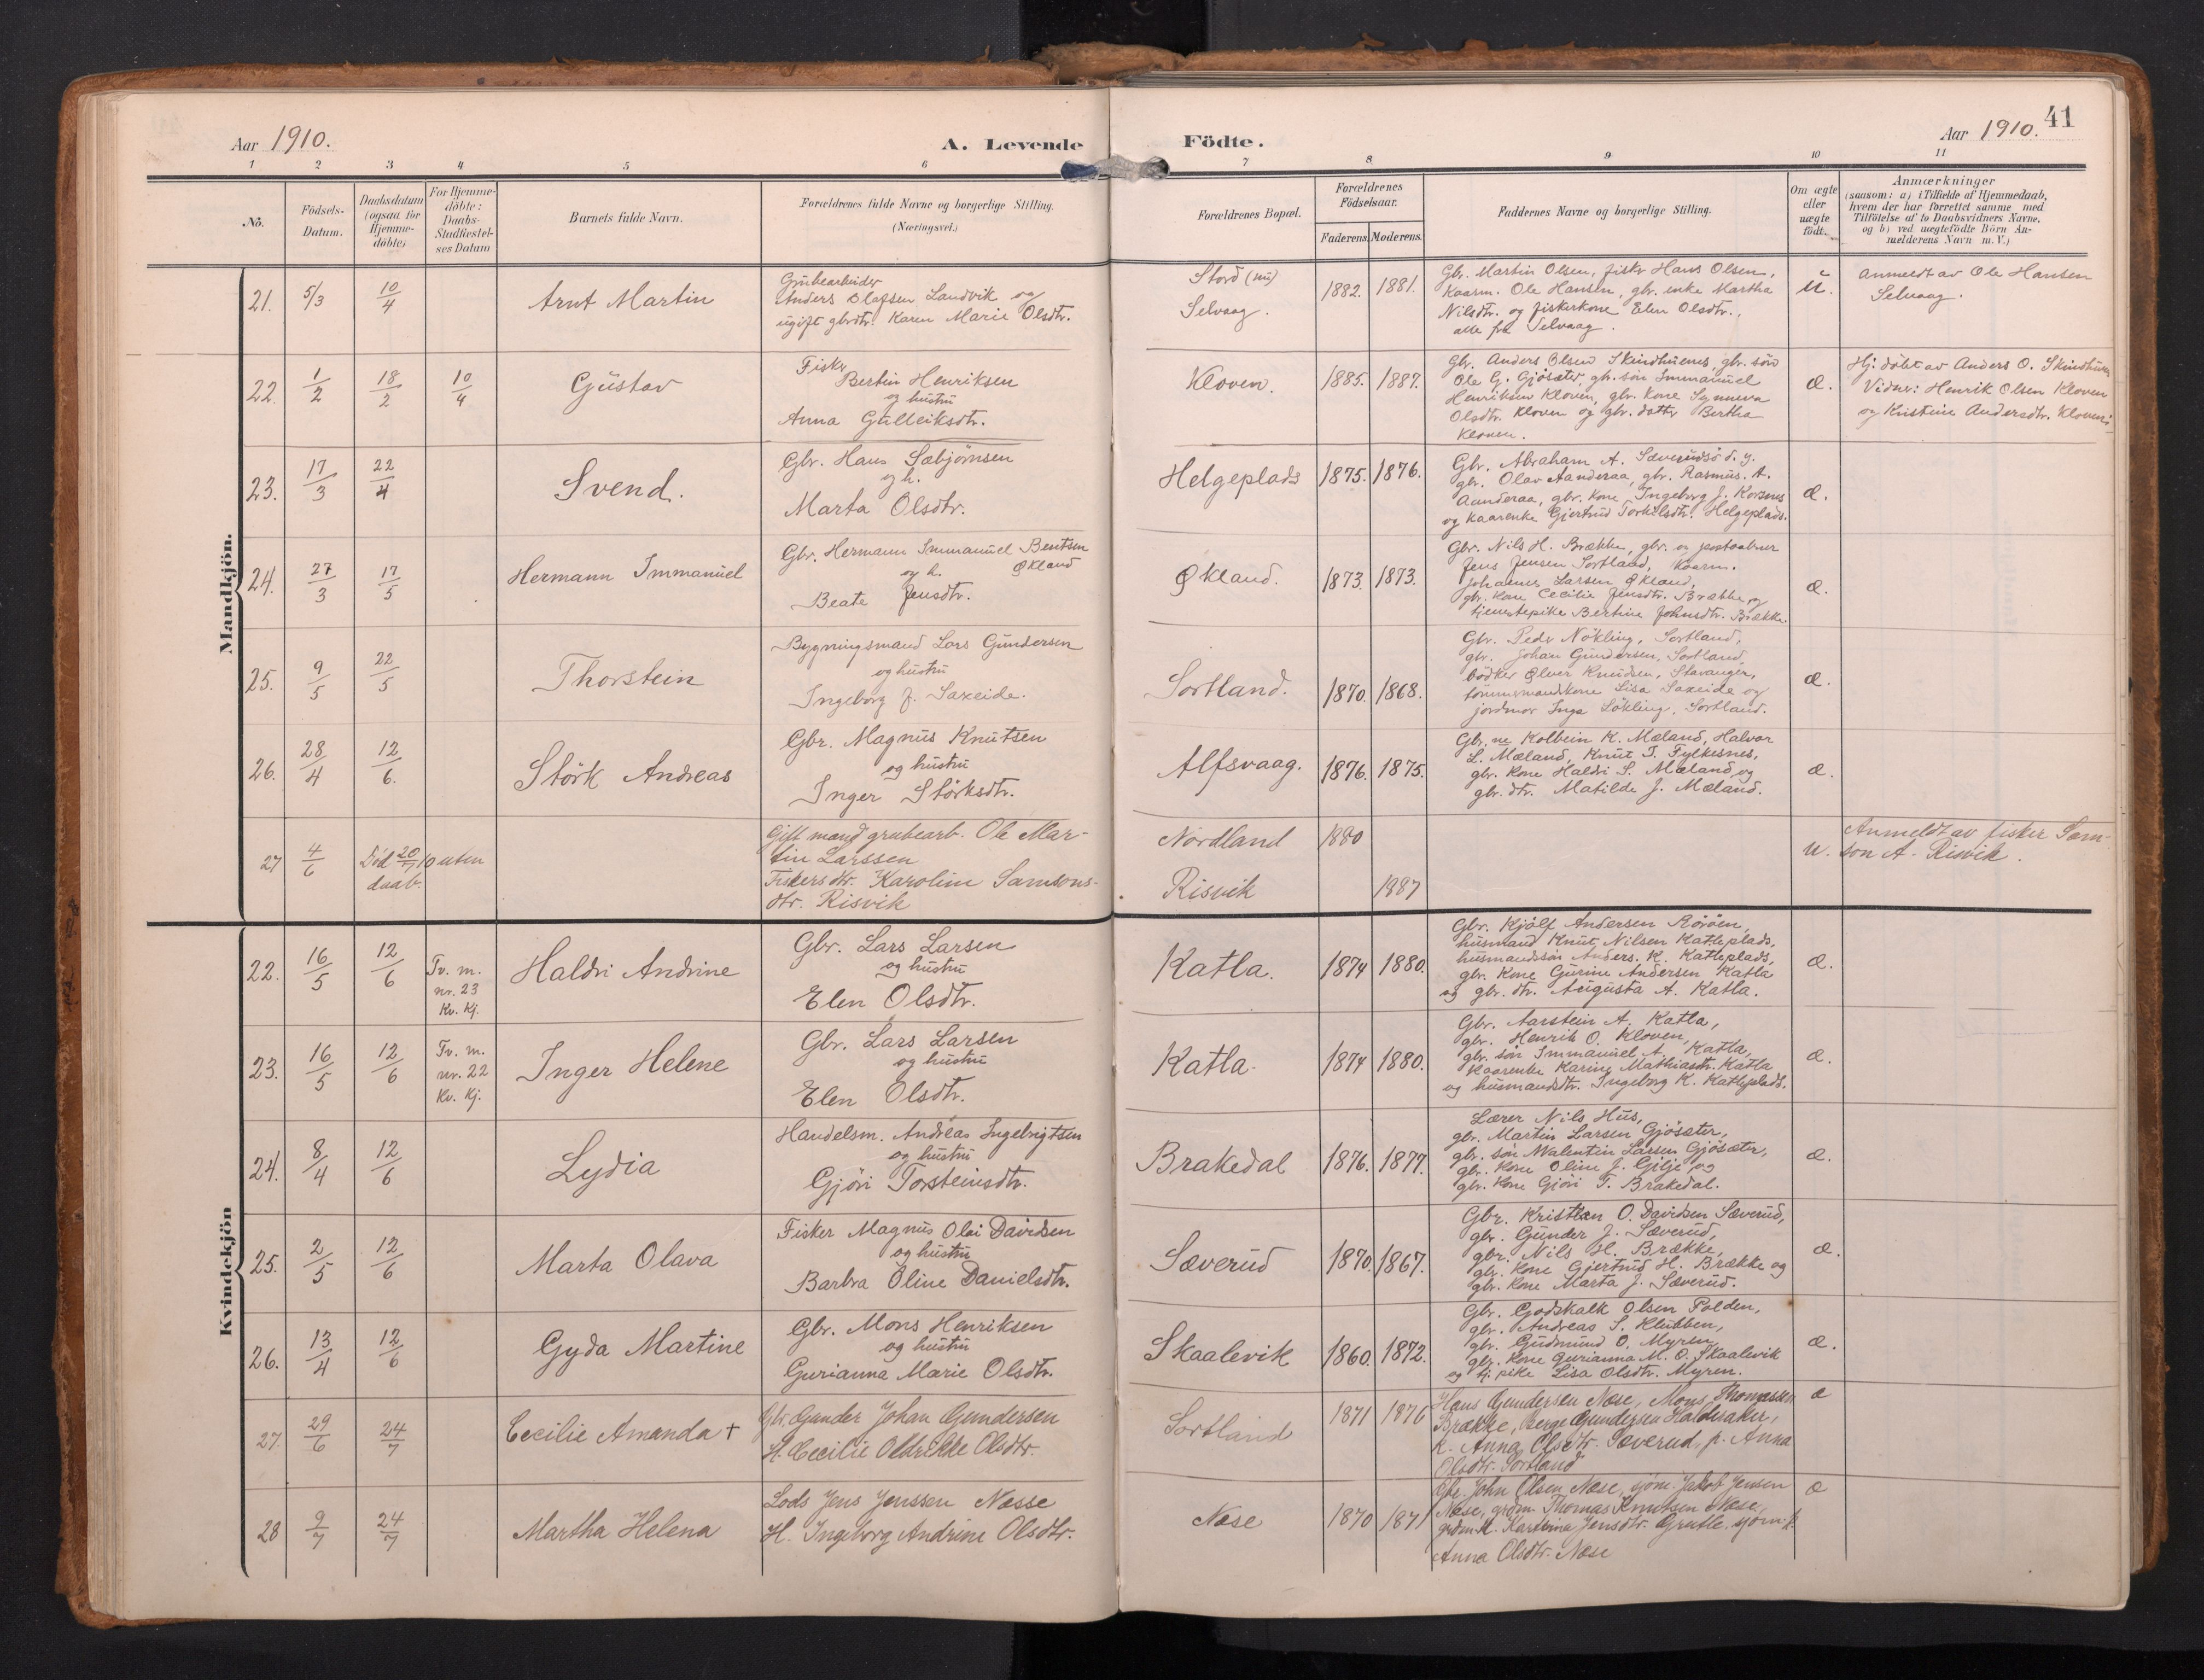 Aar 1910.
A. Levende
1 2 3 4 5 6
Nô.
Födsels-
Datum.
Daabsdatum
(ogsaa for
Hjemme-
döbte)
For Hjemme-
döbte:
Daabs-
Stadfæstel-
ses Datum
Barnets fulde Navn.
Forældrenes fulde Navne og borgerlige Stilling.
(Næringsvei.)
Mandkjön.
21. 5/3 10/4 Arnt Martin
Grubearbeider
Anders Olafsen Landvik og
ugift gbrdtr. Karen Marie Olsdtr.
22. 1/2 18/2 10/4 Gustav
Fisker
Bertin Henriksen
og hustru
Anna Gulleiksdtr.
23. 17/3 22/4 Svend.
Gbr. Hans Sæbjörnsen
og h.
Marta Olsdtr.
24. 27/3 17/5 Hermann Immanuel
Gbr. Hermann Immanuel Bentsen
og h. Økland
Beate Jensdtr.
25. 9/5 22/5 Thorstein
Bygningsmand Lars Gundersen
og hustru
Ingeborg J. Saxeide.
26. 28/4 12/6. Störk Andreas
Gbr. Magnus Knutsen
og hustru
Inger Störksdtr.
27 4/6 Död 20/7 10 uten
daab.
Gift mand grubearb. Ole Mar-
tin Larssen
Fiskersdtr. Karoline Samsons-
dtr. Risvik
Kvindekjön
22. 16/5 12/6 Tv. m.
nr. 23
Kv. Kj.
Haldri Andrine
Gbr. Lars Larsen
og hustru
Elen Olsdtr.
23. 16/5 12/6 Tv. m.
nr. 22
Kv. Kj.
Inger Helene
Gbr. Lars Larsen
og hustru
Elen Olsdtr.
24. 8/4 12/6 Lydia
Handelsm. Andreas Ingebrigtsen
og hustru
Gjöri Torsteinsdtr.
25. 2/5 12/6 Marta Olava
Fisker Magnus Olai Davidsen
og hustru
Barbra Oline Danielsdtr.
26. 13/4 12/6 Gyda Martine
Gbr. Mons Henriksen
og hustru
Gurianna Marie Olsdtr.
27. 29/6 24/7 Cecilie Amanda +
Gbr. Gunder Johan Gundersen
H. Cecilie Oldrikke Olsdtr.
28 9/7 24/7 Martha Helena
Lods Jens Jenssen Næsse
H. Ingeborg Andrine Olsdtr.
Födte.
Aar 1910.
41
7 8. 9 10 11
Forældrenes Bopæl.
Forældrenes
Födselsaar.
Faderens. Moderens.
Faddernes Navne og borgerlige Stilling.
Om ægte
eller
uægte
födt.
Anmærkninger
(saasom: a) i Tilfælde af Hjemmedaab,
hvem der har forrettet samme med
Tilföielse af to Daabsvidners Navne.
og b) ved uægtefödte Börn An-
melderens Navn m. V.)
Stord (nu)
Selvaag.
1882. 1881.
Gbr. Martin Olsen, fisker Hans Olsen,
Kaarm. Ole Hansen, gbr. enke Martha
Nilsdtr. og fiskerkone Elen Olsdtr.,
alle fra Selvaag.
u.
Anmeldt av Ole Hansen
Selvaag.
Kloven. 1885. 1887.
Gbr. Anders Olsen Skindhuenes, gbr. sön
Ole G. Gjösæter, gbr. sön Immanuel
Henriksen Kloven, gbr. kone Synneva
Olsdtr. Kloven og gbr. datter Bertha
Kloven.
æ.
Hj. döbt av Anders O. Skindhuen
Vidner: Henrik Olsen Kloven
og Kristine Andersdtr. Kloven.
Helgeplads 1875. 1876.
Gbr. Abraham A. Sæverudsö d. y.
gbr. Olav Aanderaa, gbr. Rasmus. A.
Aanderaa, gbr. kone Ingeborg J. Korsnes
og Kaarenke Gjertrud Torkilsdtr. Helgeplads.
æ.
Økland. 1873. 1873.
Gbr. Nils H. Brække, gbr. og postaabner
Jens Jensen Sortland, Kaarm.
Johannes Larsen Økland,
gbr. kone Cecilie Jensdtr. Brække og
tjenestepike Bertine Johnsdtr. Brække.
æ.
Sortland. 1870. 1868.
Gbr. Peder Nökling, Sortland,
gbr. Johan Gundersen, Sortland,
bödker Ølver Knudsen, Stavanger,
tömmermandskone Lisa Saxeide og
jordmor Inga Lökling, Sortland.
æ.
Alfsvaag. 1876. 1875.
Gbr.ne Kolbein K. Mæland, Halvor
L. Mæland, Knut T. Fylkesnes,
gbr. kone Haldri S. Mæland, og
gbr. dtr. Matilde J. Mæland.
æ.
Nordland 1880
Risvik 1887
u.
Anmeldt av fisker Sam-
son A. Risvik.
Katla. 1874 1880.
Gbr. Kjölf Andersen Röröen,
husmand Knut Nilsen Katleplads,
husmandssön Anders. K. Katleplads,
gbr. kone Gurine Andersen Katla
og gbr. dtr. Augusta A. Katla.
æ.
Katla. 1874 1880.
Gbr. Aarstein A. Katla,
gbr. Henrik O. Kloven,
gbr. sön Immanuel A. Katla,
Kaarenke Karine Mathiasdtr. Katla
og husmandsdtr. Ingeborg K. Katleplads.
æ.
Brakedal 1876. 1877.
Lærer Nils Hus,
gbr. Martin Larsen Gjösæter,
gbr. sön Valentin Larsen Gjösæter,
gbr. kone Oline J. Gilje, og
gbr. kone Gjöri T. Brakedal.
æ.
Sæverud 1870. 1867.
Gbr. Kristian O. Davidsen Sæverud,
gbr. Gunder J. Sæverud,
gbr. Nils H. Brække,
gbr. kone Gjertrud H. Brække og
gbr. kone Marta J. Sæverud.
æ.
Skaalevik 1860. 1872.
Gbr. Godskalk Olsen Folden,
gbr. Andreas S. Klubben,
gbr. Gudmund O. Myren,
gbr. kone Gurianna M. O. Skaalevik
og tj. pike Lisa Olsdtr. Myren.
æ.
Sortland 1871 1876
Hans Gundersen Næse, Mons Thomassen
Brække, Berge Gundersen Haldesaker,
k. Anna Olsdtr. Sæverud, p. Anna
Olsdtr. Sortland
æ
Næse 1870 1871
Gbr. John Olsen Næse, sjöm. Jakob Jensen
Næse, grdm. Thomas Knutsen Næse,
grdm. k. Karthina Jensdtr. Grutle, sjöm. k.
Anna Olsdtr. Næse
æ